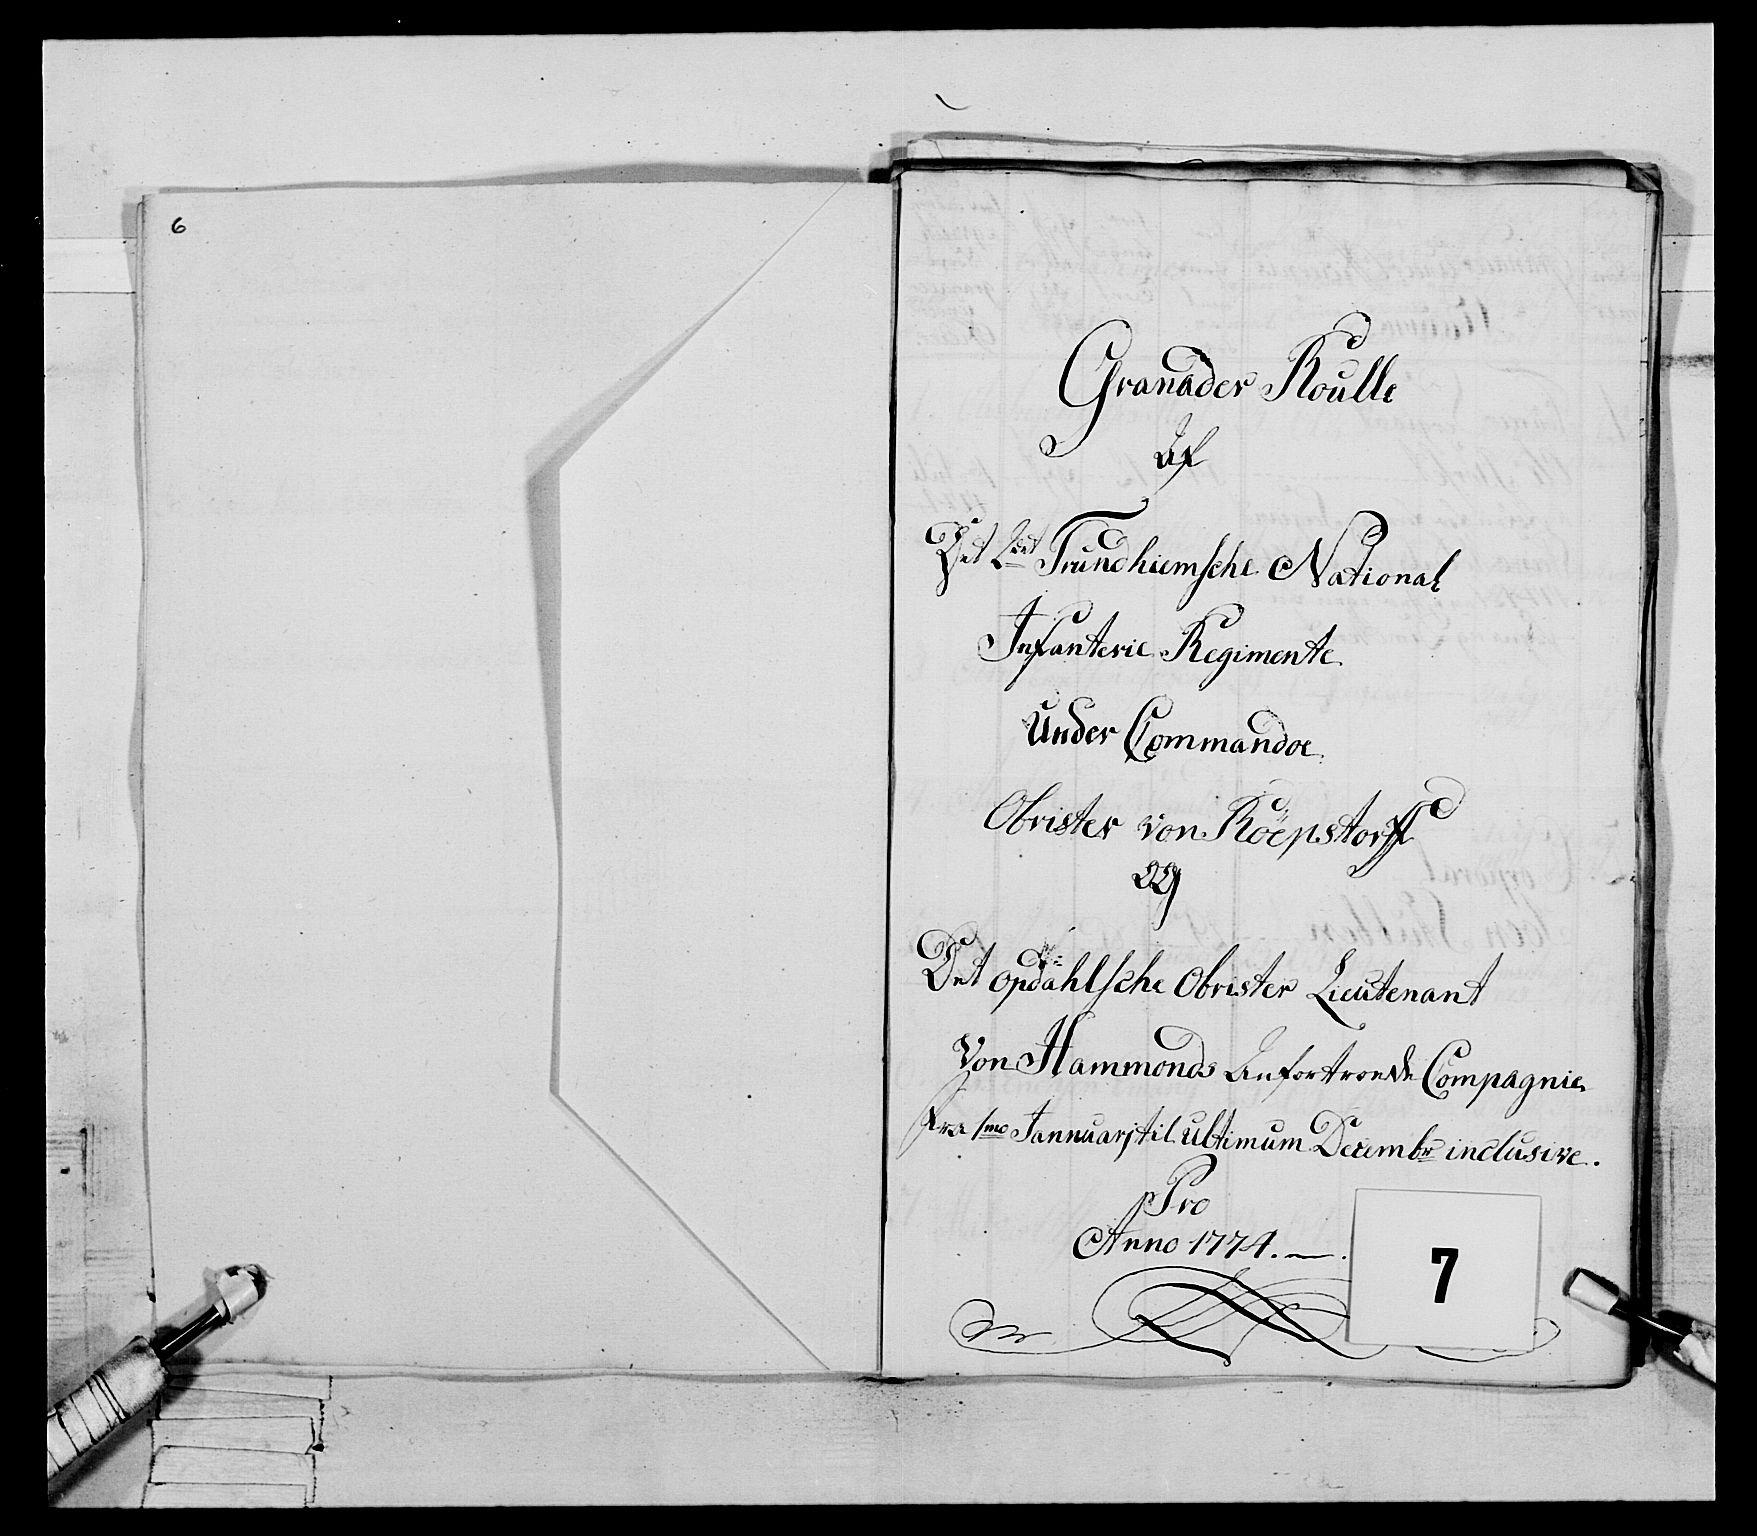 6
Granader Roulle
Af
Det 2det Trundhiemsche National
Infanterie Regimente
Under Commandoe
Obrister von Röepstorff
og
Det opdahlsche Obrister Lieutenant
Von Hammonds Anfortroede Compagnie
fra 1mo Jannuarj til ultimum Decembr inclusive.
Pro
Anno 1774. —.
7